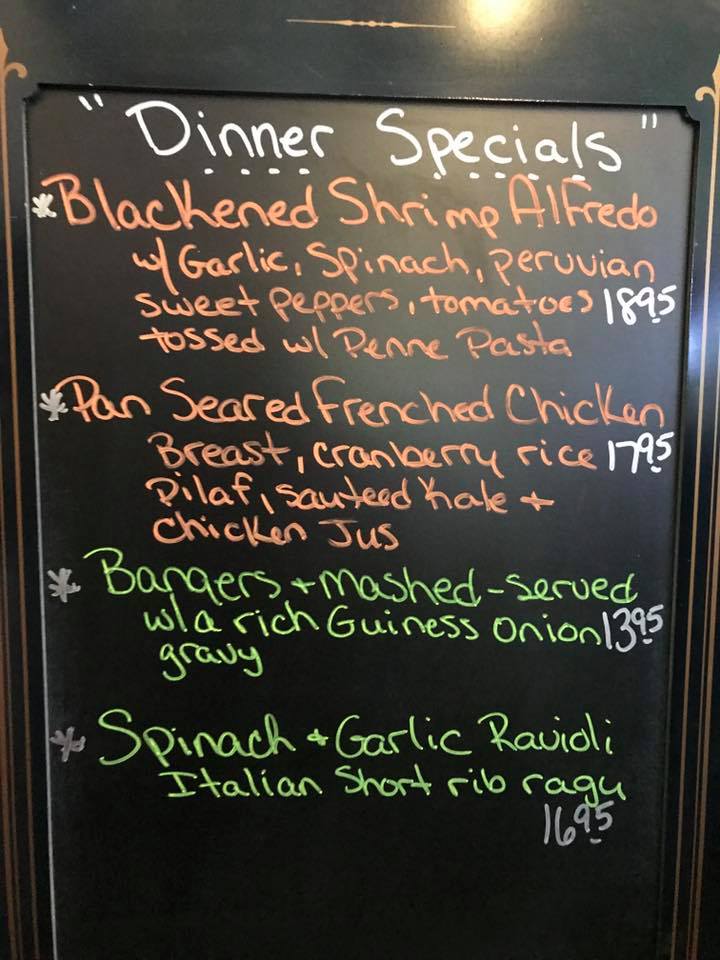 "Dinner Specials"
*Blackened Shrimp Alfredo
w/ Garlic, Spinach, peruvian
sweet peppers, tomatoes 18.95
tossed w/ Penne Pasta
*Pan Seared Frenched Chicken
Breast, cranberry rice 17.95
Pilaf, sauteed kale +
chicken Jus
* Bangers + mashed - served
w/ a rich Guiness onion 13.95
gravy
* Spinach + Garlic Ravioli
Italian Short rib ragu
16.95